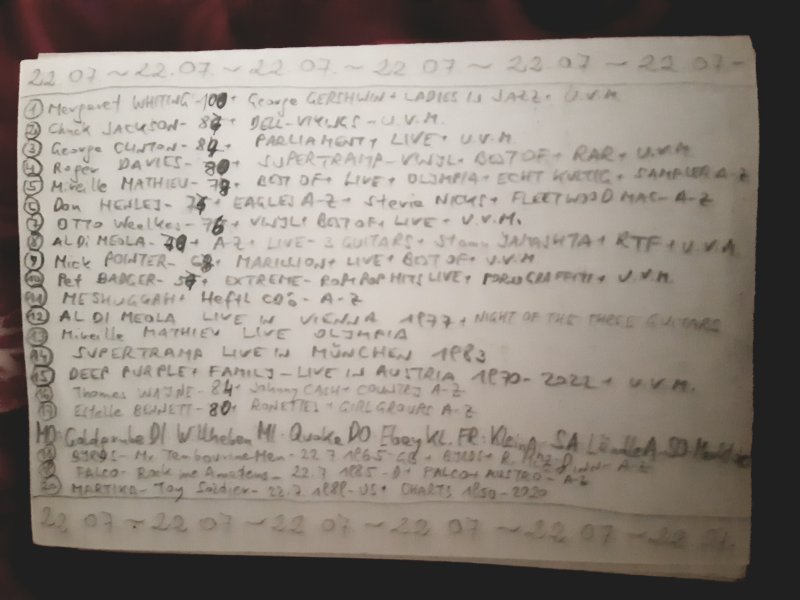 22.07. ~ 22.07. ~ 22.07. ~ 22.07 ~ 22.07 ~ 22.07 -
① Margaret WHITING - 100 + George GERSHWIN + LADIES IN JAZZ + U.V.M.
② Chuck JACKSON - DELL-VIKINGS - U.V.M.
③ George CLINTON - 84 + PARLIAMENT + LIVE + U.V.M.
④ Roger DAVIES - 80 + SUPERTRAMP - VINYL + BEST OF + RAR + U.V.M.
⑤ Mireille MATHIEU - 78 + BEST OF + LIVE + OLYMPIA + ECHT KULTIG + SAMPLER A-Z
⑥ Don HENLEY - + EAGLES A-Z + Stevie NICKS + FLEETWOOD MAC - A-Z
⑦ OTTO Waalkes - + VINYL + BEST OF + LIVE + U.V.M.
⑧ AL DI MEOLA - + A-Z + LIVE - 3 GUITARS + Stomu YAMASHTA + RTF + U.V.A
⑨ Mick POINTER - + MARILLION + LIVE + BEST OF + U.V.M
⑩ Pat BADGER - + EXTREME - LIVE + PORNOGRAFFITI + U.V.M.
⑪ MESHUGGAH + Heftl CDs - A-Z
⑫ AL DI MEOLA LIVE IN VIENNA 1977 + NIGHT OF THE THREE GUITARS
⑬ Mireille MATHIEU LIVE OLYMPIA
⑭ SUPERTRAMP LIVE IN MÜNCHEN 1983
⑮ DEEP PURPLE + FAMILY - LIVE IN AUSTRIA 1970 - 2022 + U.V.M.
⑯ Thomas WAYNE - 84 + Johnny CASH + COUNTRY A-Z
⑰ Estelle BENNETT - 80 + RONETTES + GIRLGROUPS A-Z
MO: Goldgrube DI Willhaben MI: Quoka DO Ebay KL. FR: KleinA SA LändleA SO
⑱ BYRDS - Mr. Tambourine Man - 22.7.1965 - GB + BYRDS + R. A-Z
⑲ FALCO - Rock me Amadeus - 22.7.1985 - D + FALCO + AUSTRO - A-Z
⑳ MARTIKA - Toy Soldier - 22.7.1989 - US + CHARTS 1950 - 2020
22 07 ~ 22 07 ~ 22 07 ~ 22 07 ~ 22 07 ~ 22